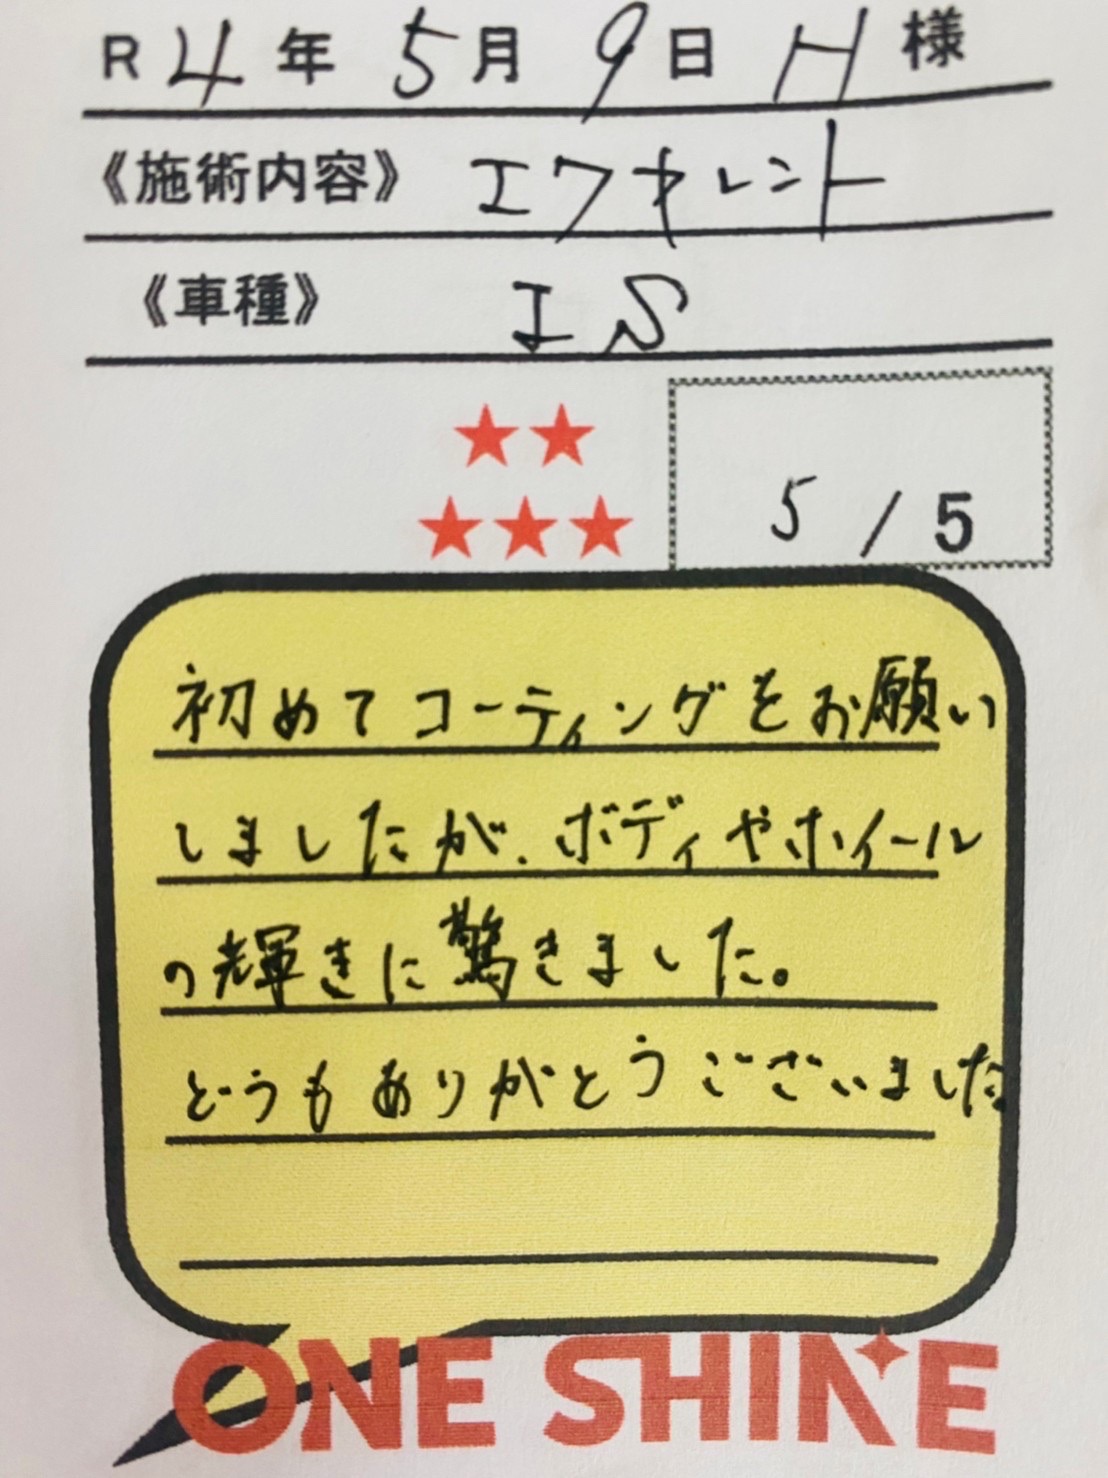 R4年5月9日H様
《施術内容》エクセレント
《車種》IS
5/5
初めてコーティングをお願い
しましたが、ボディやホイール
の輝きに驚きました。
どうもありがとうございました
ONE SHINE